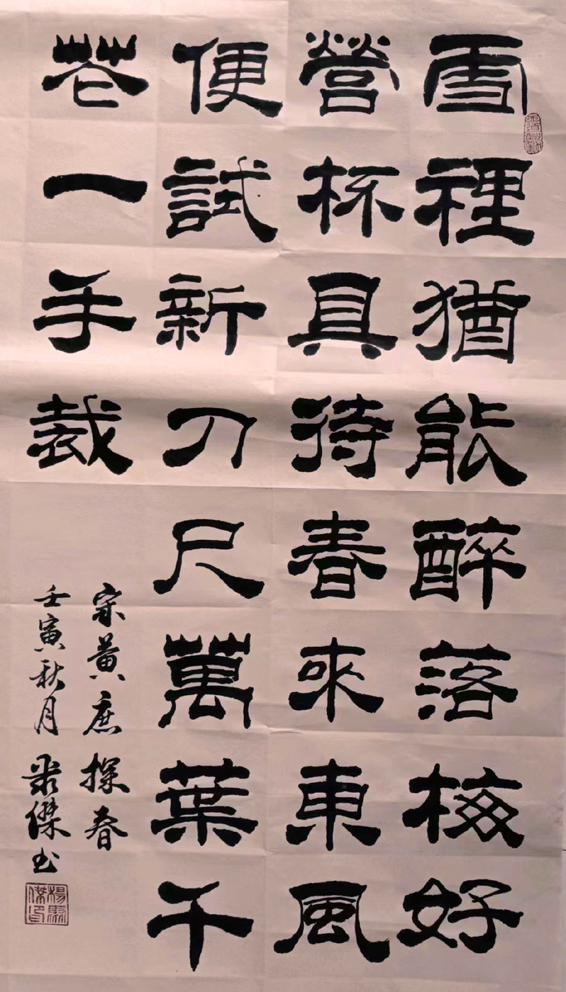 雪裡猶能醉落梅好
營杯具待春來東風
便試新刀尺萬葉千
花一手裁
宋黃庶探春
壬寅秋月傑书